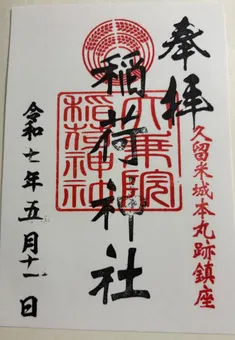 奉拝
久留米城本丸跡鎮座
稲荷神社
稲荷神社
令和七年五月十一日